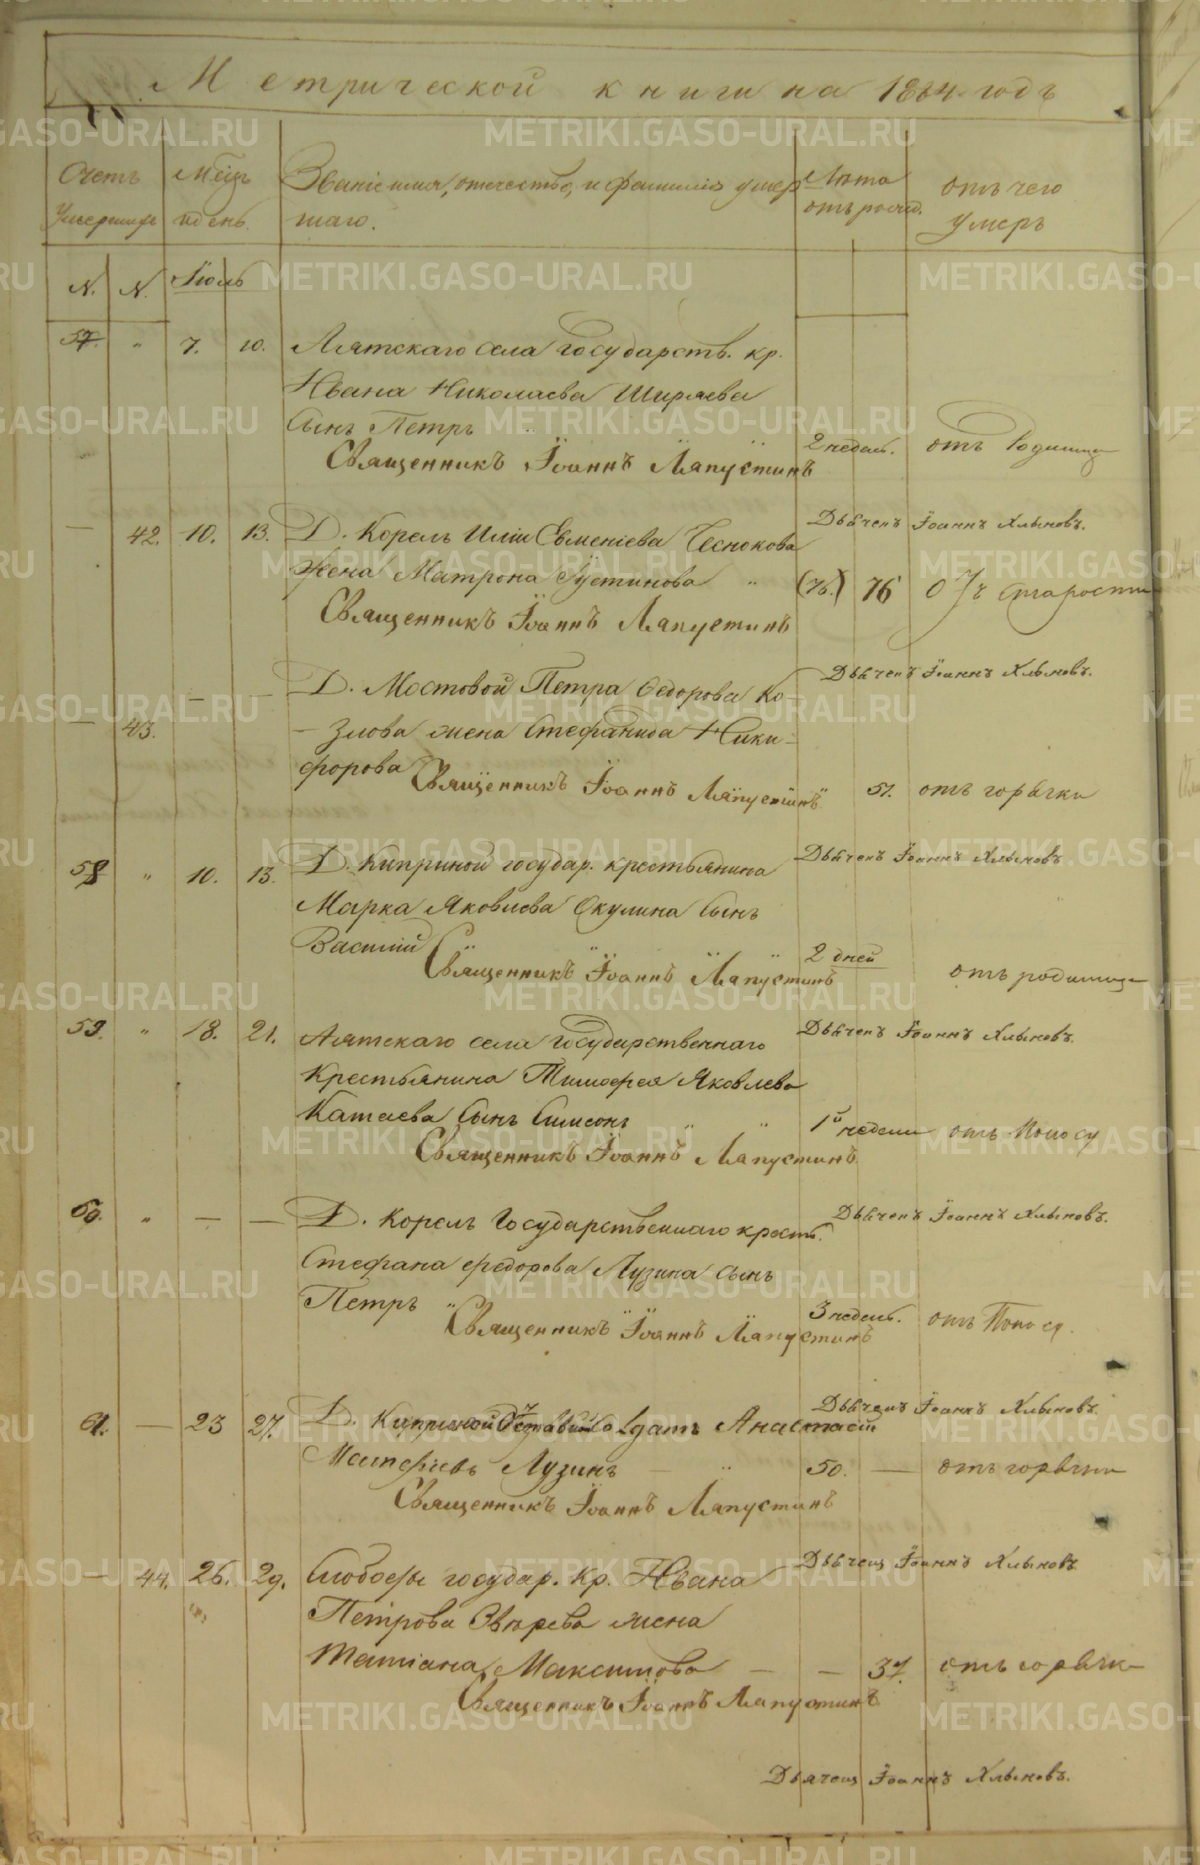 Метрической книги на 1864 годъ
Счетъ умершихъ
Мѣсяцъ и день.
Званіе имя, отчество, и фамилія умершаго.
Лѣта отъ рожд.
отъ чего умеръ
N. N. Іюль
57. " 7. 10. Аятскаго села государств. кр.
Ивана Николаева Ширяева
Сынъ Петръ 2 недѣл. отъ Родимца
Священникъ Іоаннъ Ляпустинъ
Дьячекъ Іоаннъ Хлыновъ.
— 42. 10. 13. Д. Корелъ Иліи Евменіева Чеснокова
жена Матрона Іустинова " (76.) 76 отъ старости
Священникъ Іоаннъ Ляпустинъ
Дьячекъ Іоаннъ Хлыновъ.
— 43. — — Д. Мостовой Петра Федорова Ко-
злова жена Стефанида Ники-
форова 51. отъ горячки
Священникъ Іоаннъ Ляпустинъ
Дьячекъ Іоаннъ Хлыновъ
58 " 10. 13. Д. Киприной государ. крестьянина
Марка Яковлева Окулина Сынъ
Василій 2 дней отъ родимца
Священникъ Іоаннъ Ляпустинъ
Дьячекъ Іоаннъ Хлыновъ.
59. " 18. 21. Аятскаго села государственнаго
Крестьянина Тимофея Яковлева
Катаева Сынъ Симеонъ 1й недели отъ Поносу
Священникъ Іоаннъ Ляпустинъ
Дьячекъ Іоаннъ Хлыновъ.
60. " — — Д. Корелъ Государственнаго крест.
Стефана федорова Лузина сынъ
Петръ " 3 недель. отъ Поносу.
Священникъ Іоаннъ Ляпустинъ
Дьячекъ Іоаннъ Хлыновъ.
61. — 23 27. Д. Киприной Отставный Солдатъ Анастасій
Матфіевъ Лузинъ — " 50. — отъ горячки
Священникъ Іоаннъ Ляпустинъ
Дьячекъ Іоаннъ Хлыновъ
— 44. 26. 29. Слободы государ. Кр. Ивана
Петрова Звѣрева жена
Татіана Максимова — — 37. отъ горячк
Священникъ Іоаннъ Ляпустинъ
Дьячекъ Іоаннъ Хлыновъ.
METRIKI.GASO-URAL.RU